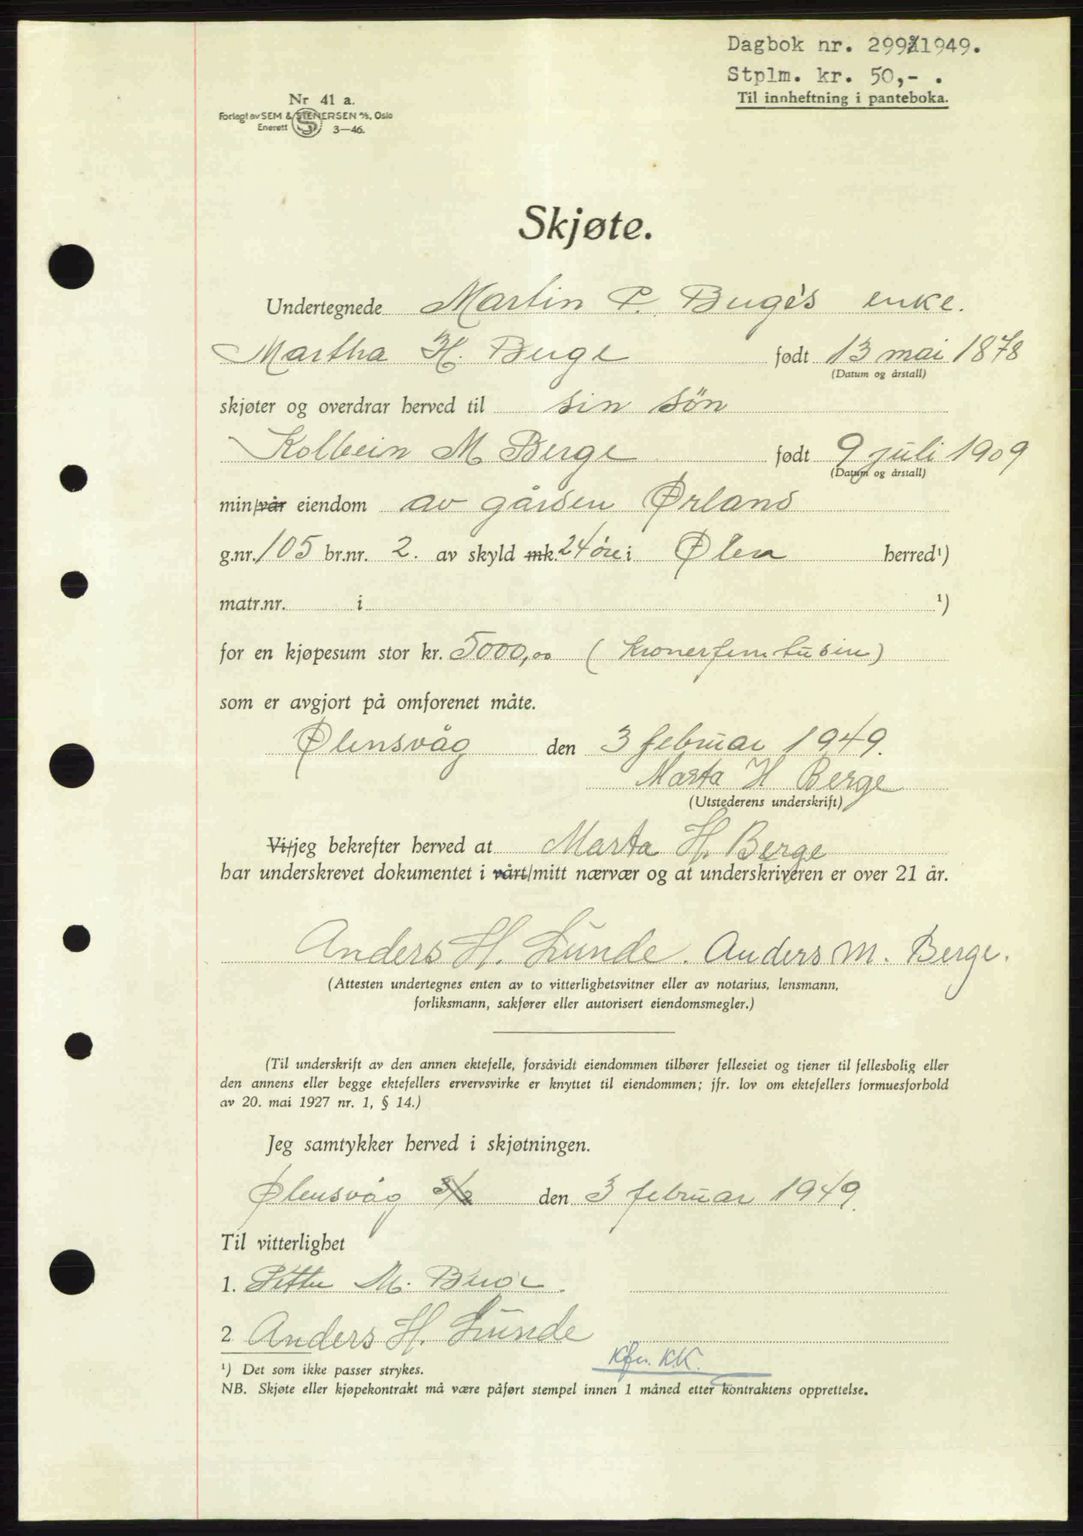 Dagbok nr. 299/1949.
Stplm. kr. 50,- .
Til innheftning i panteboka.
Nr 41 a.
Forlagt av SEM & STENERSEN A/S, Oslo
Enerett 3—46.
Skjøte.
Undertegnede Martin P. Berge's enke.
Martha H. Berge født 13 mai 1878
(Datum og årstall)
skjøter og overdrar herved til sin sön
Kolbein M Berge født 9 juli 1909
(Datum og årstall)
min/vår eiendom av gården Ørland
g.nr. 105 br.nr. 2. av skyld mk. 24 öre i Ølen herred¹)
matr.nr. i ¹)
for en kjøpesum stor kr. 5000,00 (Kronerfemtusin)
som er avgjort på omforenet måte.
Ølensvåg den 3 februar 1949.
Marta H Berge
(Utstederens underskrift)
Vi/jeg bekrefter herved at Marta H. Berge
har underskrevet dokumentet i vårt/mitt nærvær og at underskriveren er over 21 år.
Anders H. Lunde. Anders M. Berge.
(Attesten undertegnes enten av to vitterlighetsvitner eller av notarius, lensmann,
forliksmann, sakfører eller autorisert eiendomsmegler.)
(Til underskrift av den annen ektefelle, forsåvidt eiendommen tilhører felleseiet og tjener til fellesbolig eller
den annens eller begge ektefellers ervervsvirke er knyttet til eiendommen; jfr. lov om ektefellers formuesforhold
av 20. mai 1927 nr. 1, § 14.)
Jeg samtykker herved i skjøtningen.
Ølensvåg den 3 februar 1949.
Til vitterlighet
1. M. Berge.
2 Anders H. Lunde
¹) Det som ikke passer strykes.
NB. Skjøte eller kjøpekontrakt må være påført stempel innen 1 måned etter kontraktens opprettelse.